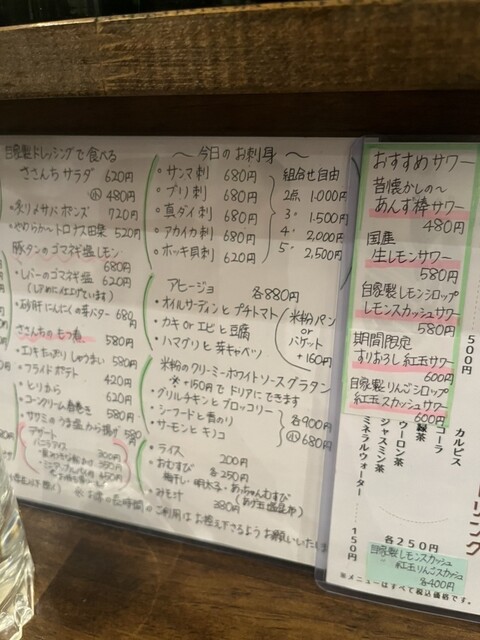 自家製ドレッシングで食べる
ささんちサラダ 620円
小 480円
・炙り〆サバポンズ 720円
520円
豚タンのゴマネギ塩レモン
680円
・レバーのゴマネギ塩 620円
・砂肝にんにくの芽バター 680円
ささんちのもつ煮 580円
・エノキたっぷりしゅうまい 580円
・フライドポテト 420円
・とりから 620円
・コーンクリーム春巻き 580円
・ササミのうま塩から揚げ 580円
デザート
バニラアイス 300円
〜今日のお刺身〜
・サンマ刺 680円
・ブリ刺 680円
・真ダイ刺 680円
・アカイカ刺 680円
・ホッキ貝刺 620円
組合せ自由
2点 1,000円
3〃 1,500円
4〃 2,000円
5〃 2,500円
アヒージョ 各880円
・オイルサーディンとプチトマト
・カキ or エビと豆腐
・ハマグリと芽キャベツ
米粉パン
or
バゲット
+160円
米粉のクリーミーホワイトソースグラタン
※+150円でドリアにできます
・グリルチキンとブロッコリー
・シーフードと青のり
・サーモンとキノコ
各900円
小 680円
・ライス 200円
・おむすび 各250円
梅干し・明太子・
・みそ汁
※お席の長時間のご利用はお控え下さるようお願いいたします
おすすめサワー
昔懐かしの〜
あんず棒サワー
480円
国産
生レモンサワー
580円
自家製レモンシロップ
レモンスカッシュサワー
580円
期間限定
すりおろし紅玉サワー
600円
自家製りんごシロップ
紅玉スカッシュサワー
600円
500円
カルピス
コーラ
緑茶
ウーロン茶
ジャスミン茶
ミネラルウォーター
150円
各250円
自家製レモンスカッシュ
紅玉りんごスカッシュ
各400円
※メニューはすべて税込価格です。
リンク